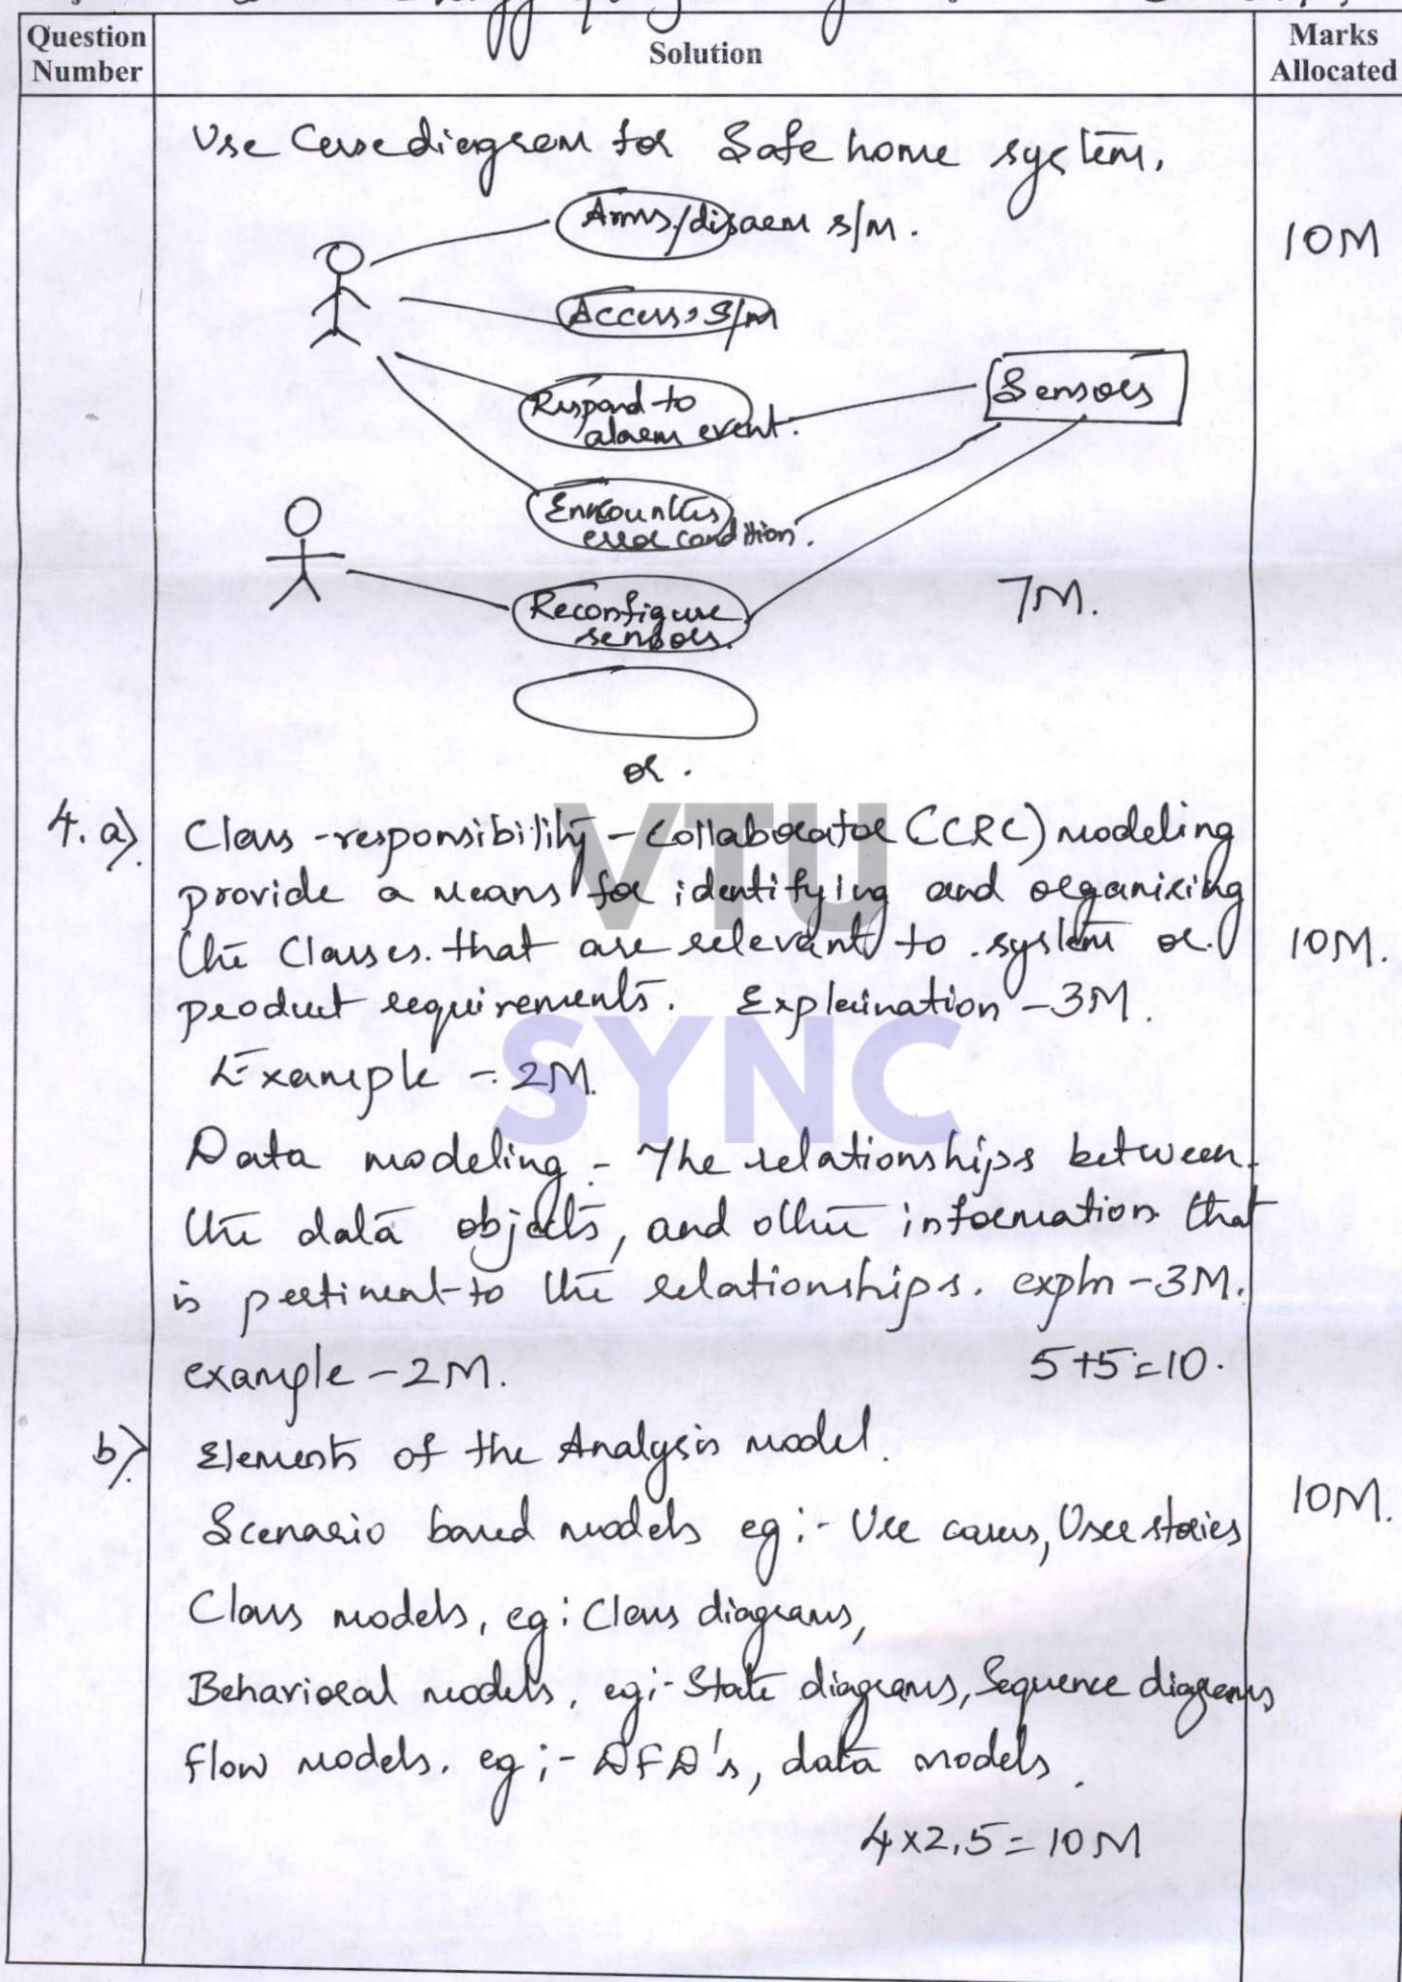 Question Number
Solution
Marks Allocated
Use Case diagram for Safe home system.
Arms/disarm s/m.
10M
Access S/m
Respond to
alarm event.
Sensors
Encounters
error condition.
Reconfigure
sensors.
7M.
or.
4. a)
Class-responsibility-Collaborator (CRC) modeling
provide a means for identifying and organizing
the Classes. that are relevant to system or
10M.
product requirements. Explaination - 3M.
Example - 2M.
Data modeling - The relationships between
the data objects, and other information that
is pertinent to the relationships. expln - 3M.
example - 2M.
5+5=10.
b)
Elements of the Analysis model.
10M.
Scenario based models eg:- Use cases, User stories
Class models, eg: Class diagrams,
Behavioral models, eg:- State diagrams, Sequence diagrams
flow models. eg:- DFD's, data models.
4x2.5=10M
VTU
SYNC